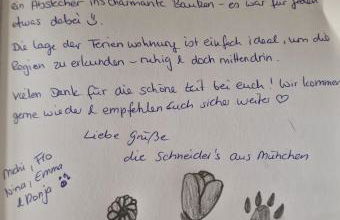 ein Abstecher ins charmante Bauken - es war für jeden
etwas dabei
Die Lage der Ferienwohnung ist einfach ideal, um die
Region zu erkunden - ruhig & doch mittendrin.
Vielen Dank für die schöne Zeit bei euch! Wir kommen
gerne wieder & empfehlen Euch sicher weiter ♡
Liebe Grüße
die Schneider's aus München
Flo
Nina, Emma
& Donja